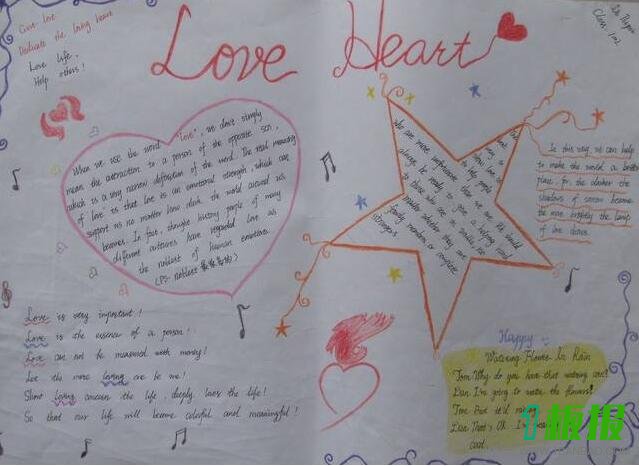 Give love
Dedicate the loving heart
Love life,
Help others!
Love Heart
Class 102
When we use the word "love", we don't simply
mean the attraction to a person of the opposite sex,
which is a very narrow definition of the word. The real meaning
of "love" is that love is an emotional strength, which can
support us no matter how dark the world around us
becomes. In fact, throught history people of many
different cultures have regarded love as
the noblest of human emotions.
(PS: noblest
who are more unfortunate than we are. We should
always be ready to give a helping hand
to those who are in trouble, no
matter whether they are
family members or complete
strangers
In this way, we can help
to make the world a better
place, for the darker the
shadows of sorrow become
the more brightly the lamp
of love shines.
Love is very important!
Love is the essence of a person!
Love can not be measured with money!
Let the more loving one be me!
Show loving concern the life, deeply loves the life!
So that our life will become colorful and meaningful!
Happy
Watering Flower In Rain
Tom: Why do you have that watering can?
Dan: I'm going to water the flowers!
Tom: But it's
Dan: That's OK. I'm
coat.
板报